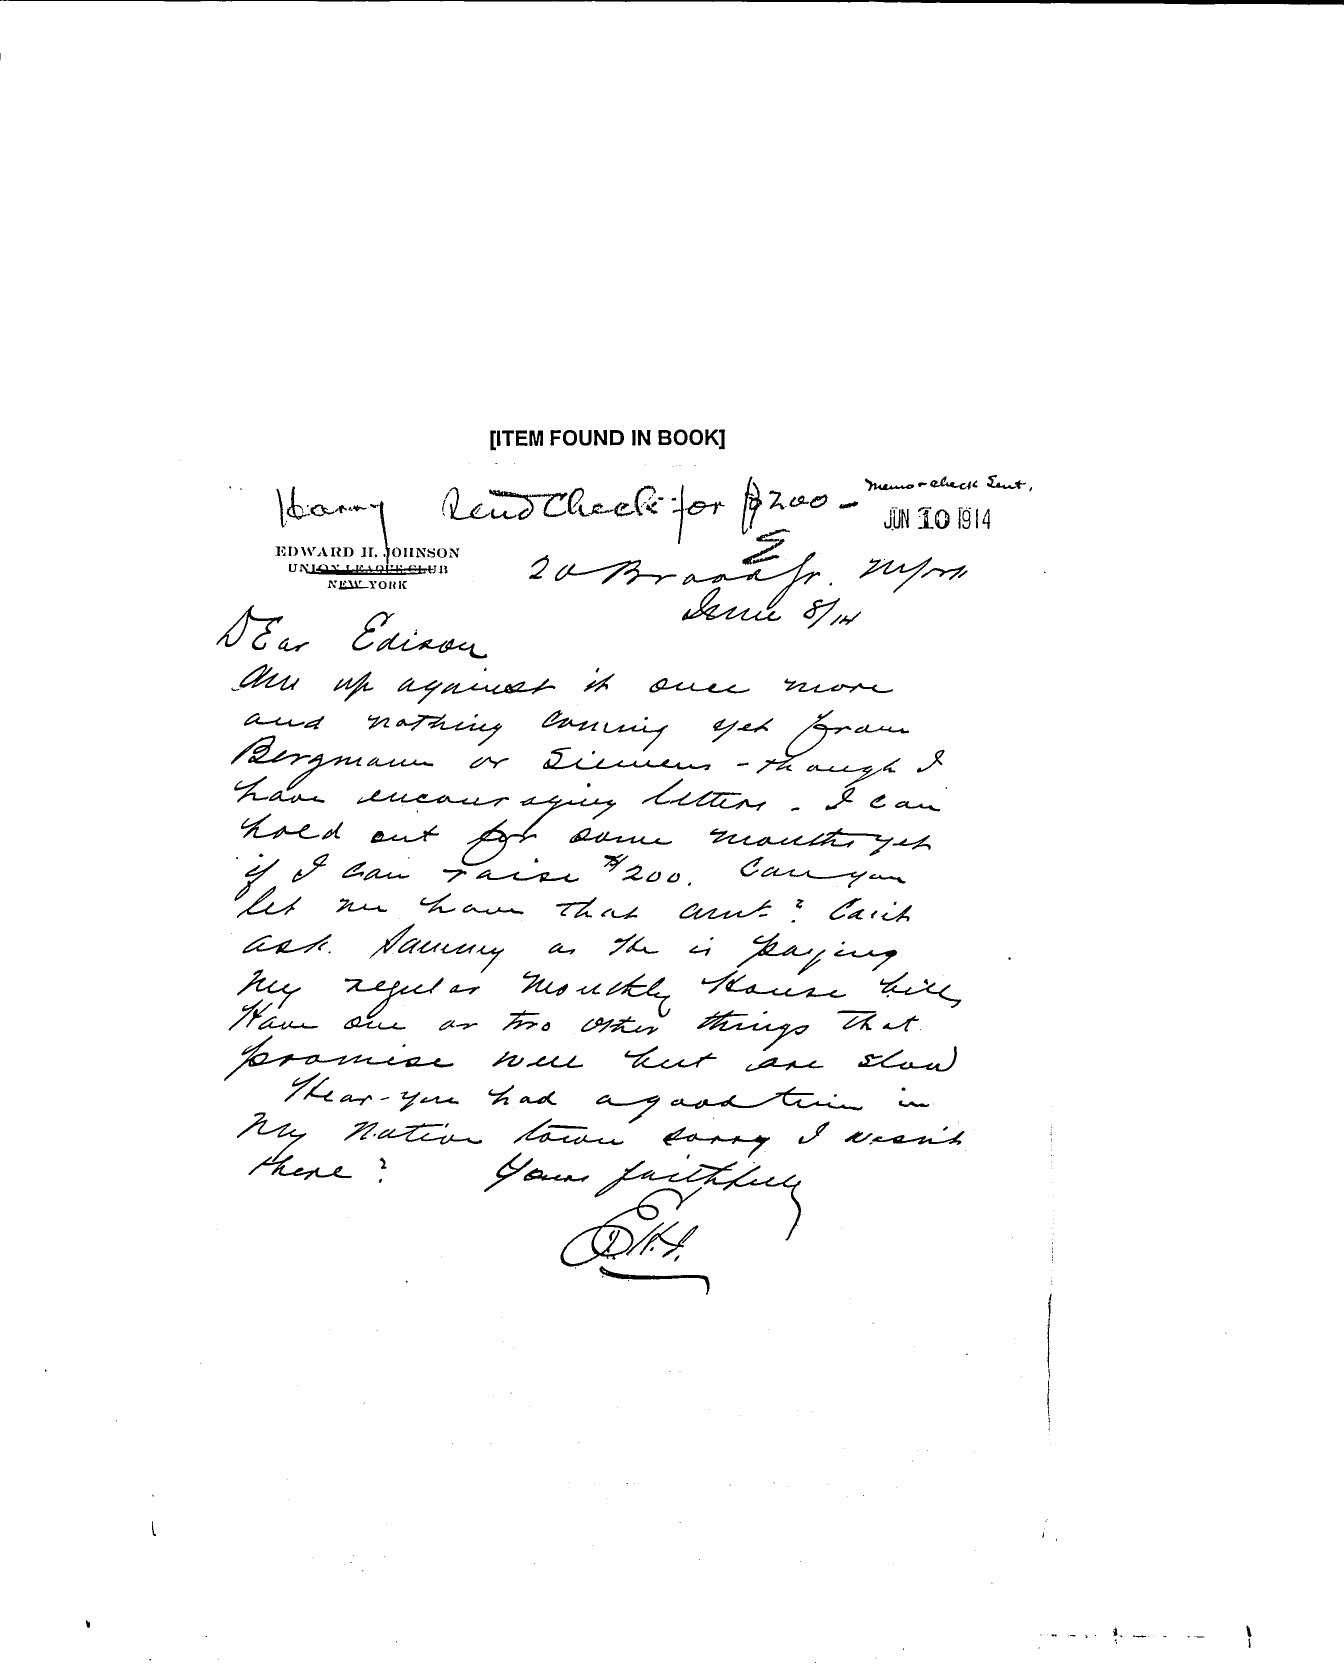 [ITEM FOUND IN BOOK]
Harry Send Check for $200 —
memo - check Sent.
JUN 10 1914
E
EDWARD H. JOHNSON
UNION LEAGUE CLUB
NEW YORK
20 Broad St. N York
June 8/14
DEar Edison
Am up against it once more
and nothing coming yet from
Bergmann or Siemens - though I
have encouraging letters. I can
hold out for some months yet
if I can raise $200. Can you
let me have that amt? Can't
ask Sammy as He is paying
my regular monthly House bills
Have one or two other things that
promise well but are slow
Hear you had a good time in
my native town sorry I wasn't
there? Yours faithfully
E.H.J.